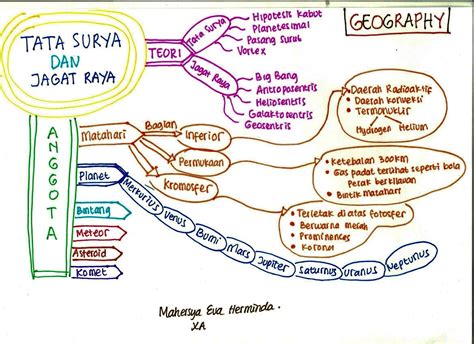 TATA SURYA
DAN
JAGAT RAYA
GEOGRAPHY
TEORI
Tata Surya
Hipotesis Kabut
Planetesimal
Pasang Surut
Vortex
Jagat Raya
Big Bang
Antroposentris
Heliosentris
Galaktosentris
Geosentris
ANGGOTA
Matahari
Bagian
Inferior
Daerah Radioaktif
Daerah konveksi
Termonuklir
Hydrogen Helium
Permukaan
Ketebalan 300km
Gas padat terlihat seperti bola
perak berkilauan
Bintik matahari
Kromosfer
Terletak di atas fotosfer
Berwarna merah
Prominences
Korona
Planet
Merkurius
Venus
Bumi
Mars
Jupiter
Saturnus
Uranus
Neptunus
Bintang
Meteor
Asteroid
Komet
Mahersya Eva Herminda.
XA